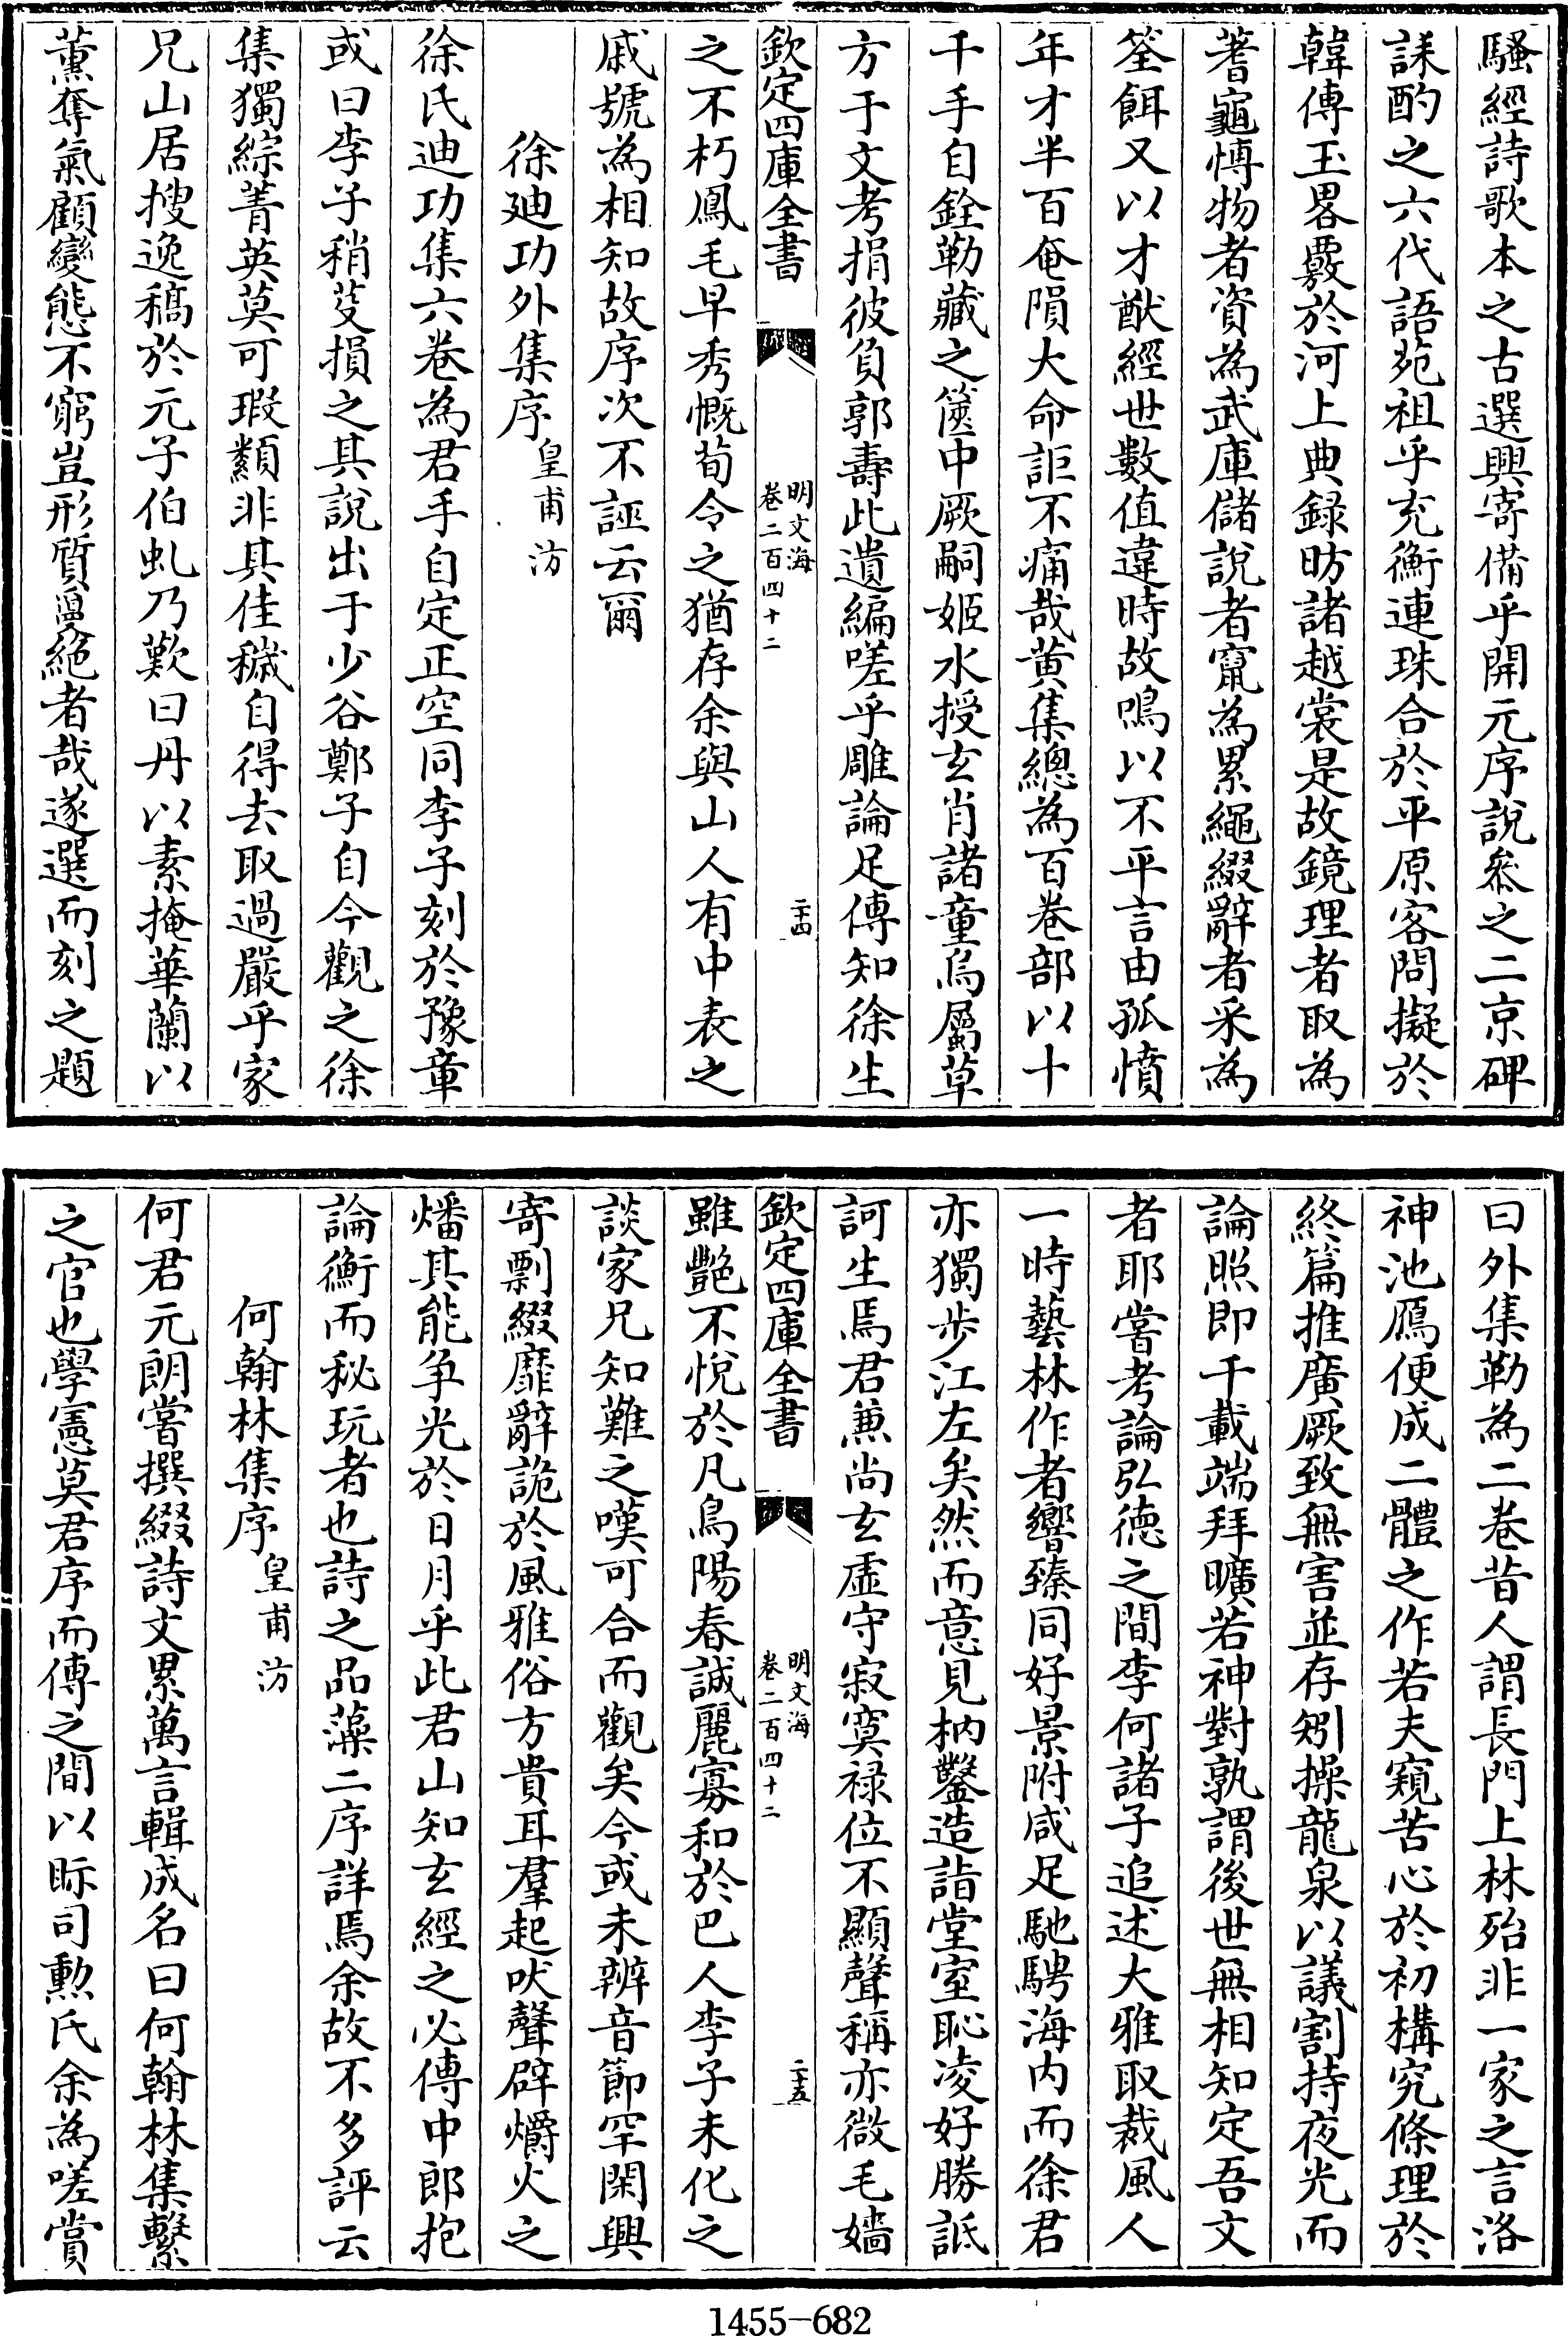 騷經詩歌本之古選興寄備乎開元序說叅之二京碑
誄酌之六代語苑祖乎充衡連珠合於平原客問擬於
韓傳玉畧覈於河上典録昉諸越裳是故鏡理者取為
蓍龜愽物者資為武庫儲說者窺為累繩綴辭者采為
筌餌又以才猷經世數值違時故鳴以不平言由孤憤
年才半百奄隕大命詎不痛哉黄集總為百卷部以十
千手自銓勒藏之篋中厥嗣姬水授玄肖諸童烏屬草
方于文考捐彼負郭壽此遺編嗟乎雕論足傳知徐生
欽定四庫全書
明文海
卷二百四十二
二十四
之不朽鳳毛早秀慨荀令之猶存余與山人有中表之
戚號為相知故序次不誣云爾
徐廸功外集序皇甫汸
徐氏迪功集六卷為君手自定正空同李子刻於豫章
或曰李子稍芟損之其說出于少谷鄭子自今觀之徐
集獨綜菁英莫可瑕纇非其佳穢自得去取過嚴乎家
兄山居搜逸稿於元子伯虬乃歎曰丹以素掩華蘭以
薰奪氣顧變態不窮豈形質敻絶者哉遂選而刻之題
曰外集勒為二卷昔人謂長門上林殆非一家之言洛
神池鴈便成二體之作若夫窺苦心於初構究條理於
終篇推廣厥致無害並存矧操龍泉以議割持夜光而
論照即千載端拜曠若神對孰謂後世無相知定吾文
者耶嘗考論弘徳之間李何諸子追述大雅取裁風人
一時藝林作者響臻同好景附咸足馳騁海内而徐君
亦獨步江左矣然而意見枘鑿造詣堂室恥凌好勝詆
訶生焉君兼尚玄虛守寂寞禄位不顯聲稱亦微毛嬙
欽定四庫全書
明文海
卷二百四十二
二十五
雖艷不悅於凡鳥陽春誠麗寡和於巴人李子未化之
談家兄知難之嘆可合而觀矣今或未辨音節罕閑興
寄剽綴靡辭詭於風雅俗方貴耳羣起吠聲辟爝火之
燔其能争光於日月乎此君山知玄經之必傳中郎抱
論衡而秘玩者也詩之品藻二序詳焉余故不多評云
何翰林集序皇甫汸
何君元朗嘗撰綴詩文累萬言輯成名曰何翰林集繫
之官也學憲莫君序而傳之間以眎司勲氏余為嗟賞
1455-682